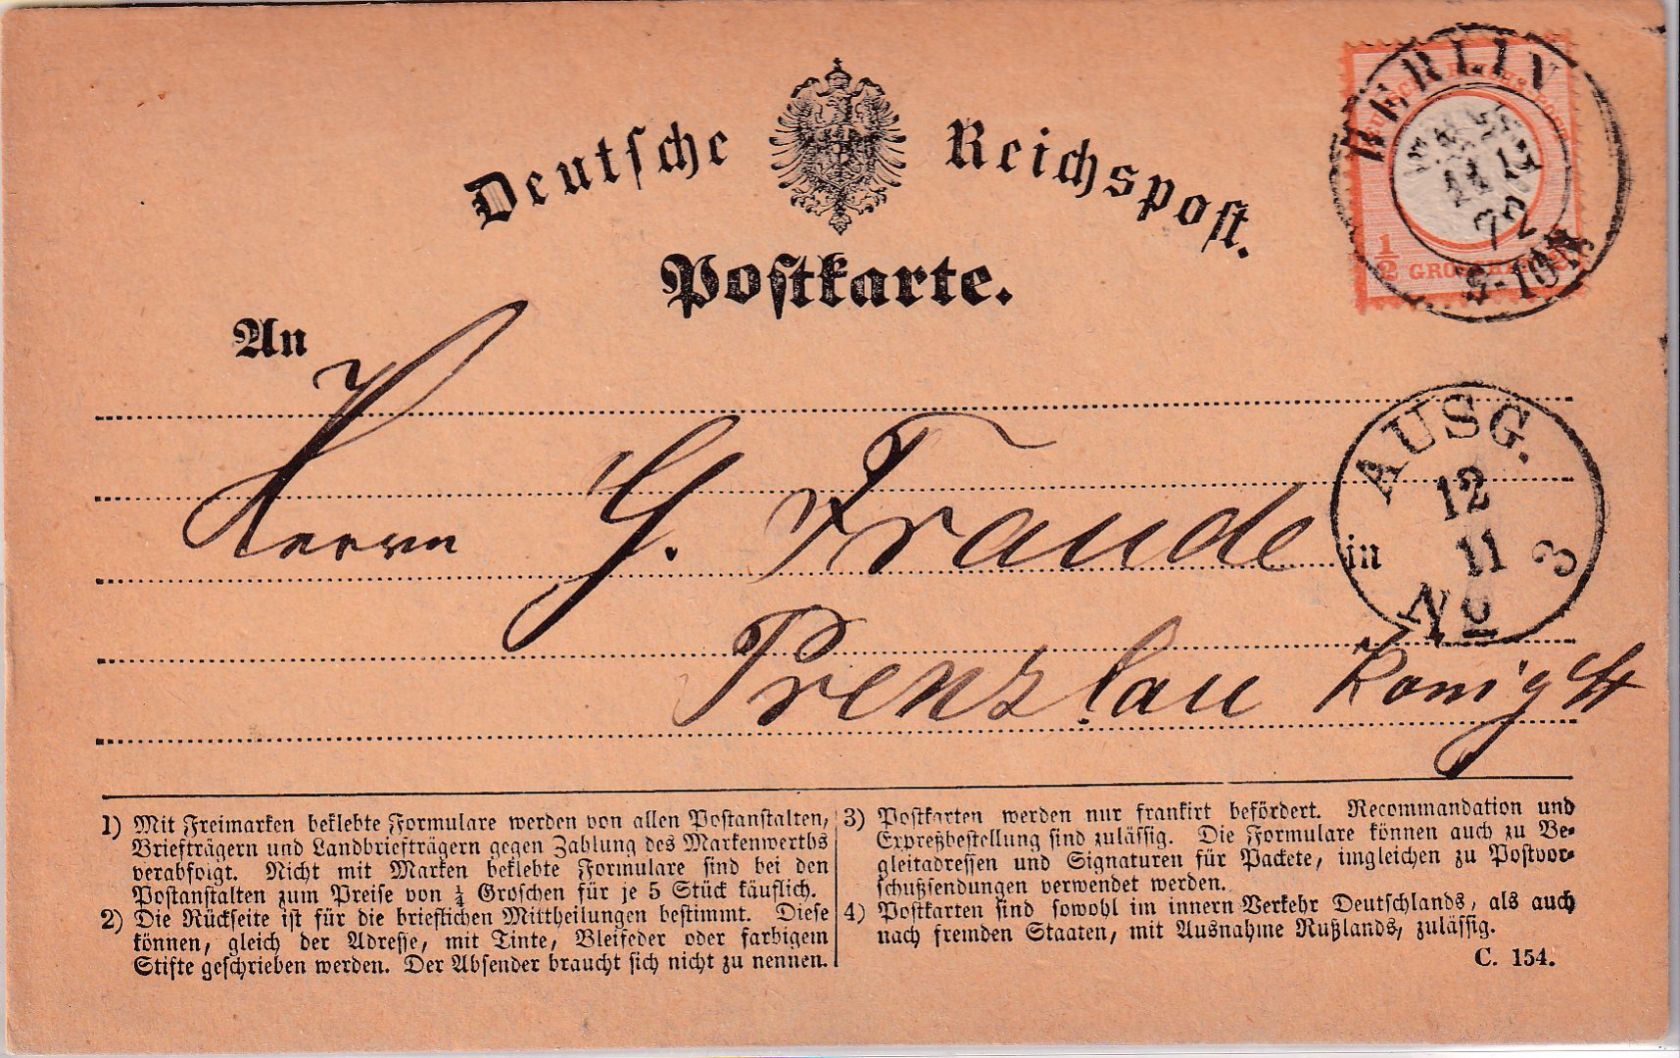 Deutsche Reichspost.
Postkarte.
BERLIN
11
72
8-10N
½ GROSCHEN
An
Herrn G. Fraude
in
AUSG.
12
11
No 3
Prenzlau
1) Mit Freimarken beklebte Formulare werden von allen Postanstalten,
Briefträgern und Landbriefträgern gegen Zahlung des Markenwerths
verabfolgt. Nicht mit Marken beklebte Formulare sind bei den
Postanstalten zum Preise von ¼ Groschen für je 5 Stück käuflich.
2) Die Rückseite ist für die brieflichen Mittheilungen bestimmt. Diese
können, gleich der Adresse, mit Tinte, Bleifeder oder farbigem
Stifte geschrieben werden. Der Absender braucht sich nicht zu nennen.
3) Postkarten werden nur frankirt befördert. Recommandation und
Expreßbestellung sind zulässig. Die Formulare können auch zu Be-
gleitadressen und Signaturen für Packete, imgleichen zu Postvor-
schußsendungen verwendet werden.
4) Postkarten sind sowohl im innern Verkehr Deutschlands, als auch
nach fremden Staaten, mit Ausnahme Rußlands, zulässig.
C. 154.